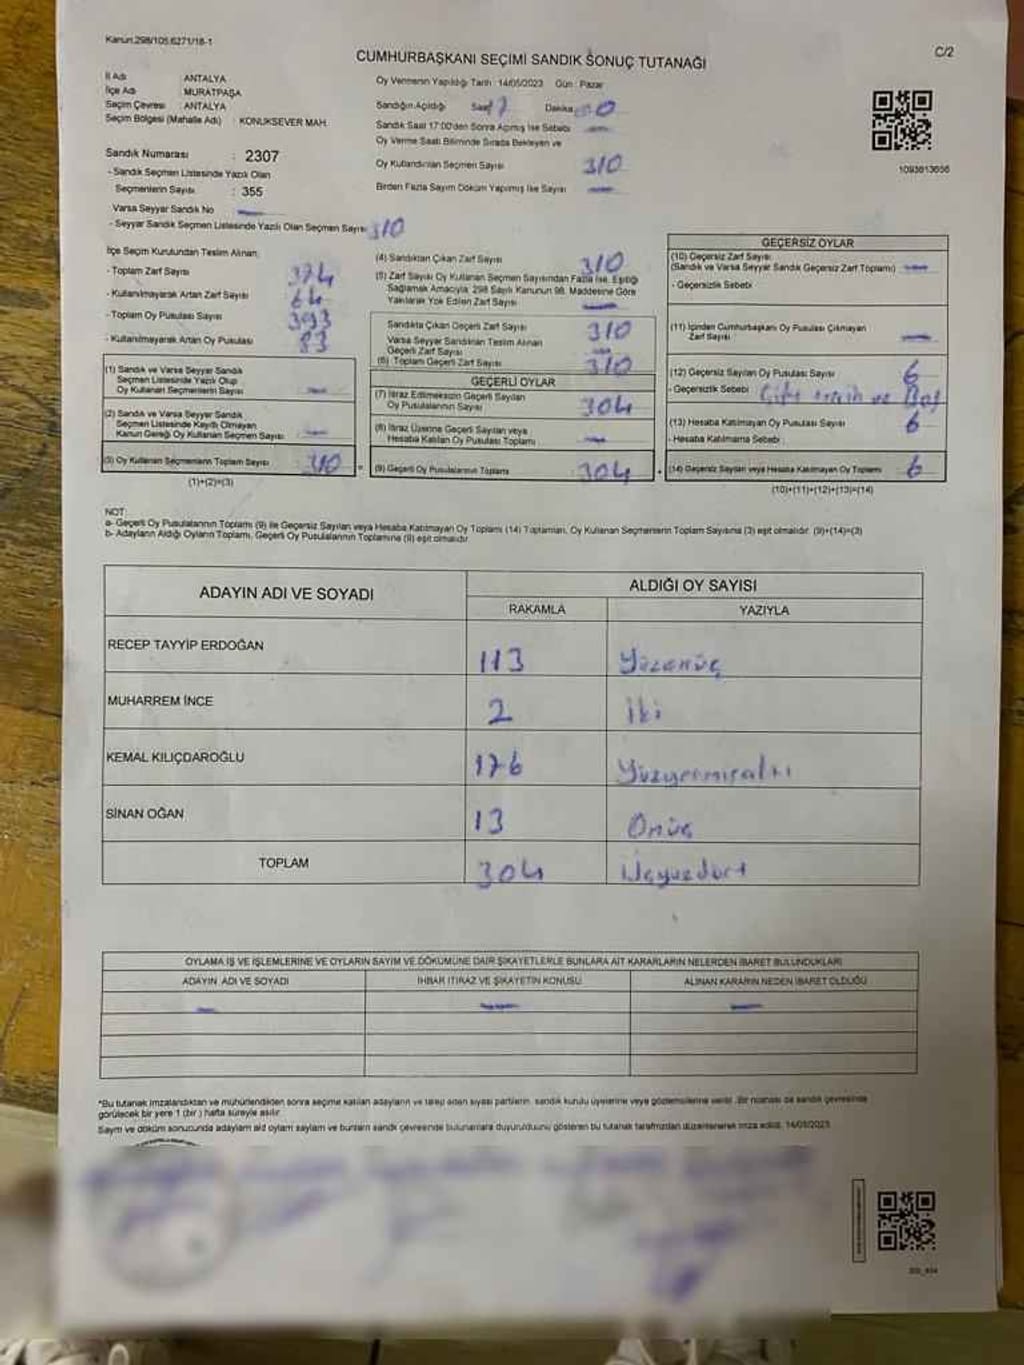 Kanun.298/105.6271/18-1
C/2
CUMHURBAŞKANI SEÇİMİ SANDIK SONUÇ TUTANAĞI
İl Adı : ANTALYA
İlçe Adı : MURATPAŞA
Seçim Çevresi : ANTALYA
Seçim Bölgesi (Mahalle Adı) : KONUKSEVER MAH.
Sandık Numarası : 2307
- Sandık Seçmen Listesinde Yazılı Olan
Seçmenlerin Sayısı : 355
Varsa Seyyar Sandık No
- Seyyar Sandık Seçmen Listesinde Yazılı Olan Seçmen Sayısı 310
Oy Vermenin Yapıldığı Tarih : 14/05/2023 Gün : Pazar
Sandığın Açıldığı Saat Dakika
Sandık Saat 17:00'den Sonra Açmış İse Sebebi
Oy Verme Saati Bitiminde Sırada Bekleyen ve
Oy Kullandırılan Seçmen Sayısı 310
Birden Fazla Sayım Döküm Yapılmış İse Sayısı
1093613656
İlçe Seçim Kurulundan Teslim Alınan:
- Toplam Zarf Sayısı 374
- Kullanılmayarak Artan Zarf Sayısı 64
- Toplam Oy Pusulası Sayısı 393
- Kullanılmayarak Artan Oy Pusulası 83
(1) Sandık ve Varsa Seyyar Sandık
Seçmen Listesinde Yazılı Olup
Oy Kullanan Seçmenlerin Sayısı
(2) Sandık ve Varsa Seyyar Sandık
Seçmen Listesinde Kaydı Olmayan
Kanun Gereği Oy Kullanan Seçmen Sayısı
(3) Oy Kullanan Seçmenlerin Toplam Sayısı 310
(1)+(2)=(3)
(4) Sandıktan Çıkan Zarf Sayısı 310
(5) Zarf Sayısı Oy Kullanan Seçmen Sayısından Fazla İse, Eşitliği
Sağlamak Amacıyla; 298 Sayılı Kanunun 98. Maddesine Göre
Yakılarak Yok Edilen Zarf Sayısı
Sandıkta Çıkan Geçerli Zarf Sayısı 310
Varsa Seyyar Sandıktan Teslim Alınan
Geçerli Zarf Sayısı
(6) Toplam Geçerli Zarf Sayısı 310
GEÇERLİ OYLAR
(7) İtiraz Edilmeksizin Geçerli Sayılan
Oy Pusulalarının Sayısı 304
(8) İtiraz Üzerine Geçerli Sayılan veya
Hesaba Katılan Oy Pusulası Toplamı
(9) Geçerli Oy Pusulalarının Toplamı 304
GEÇERSİZ OYLAR
(10) Geçersiz Zarf Sayısı
(Sandık ve Varsa Seyyar Sandık Geçersiz Zarf Toplamı)
- Geçersizlik Sebebi
(11) İçinden Cumhurbaşkanı Oy Pusulası Çıkmayan
Zarf Sayısı
(12) Geçersiz Sayılan Oy Pusulası Sayısı 6
- Geçersizlik Sebebi
(13) Hesaba Katılmayan Oy Pusulası Sayısı 6
- Hesaba Katılmama Sebebi :
(14) Geçersiz Sayılan veya Hesaba Katılmayan Oy Toplamı 6
(10)+(11)+(12)+(13)=(14)
NOT:
a- Geçerli Oy Pusulalarının Toplamı (9) ile Geçersiz Sayılan veya Hesaba Katılmayan Oy Toplamı (14) Toplamları, Oy Kullanan Seçmenlerin Toplam Sayısına (3) eşit olmalıdır. (9)+(14)=(3)
b- Adayların Aldığı Oyların Toplamı, Geçerli Oy Pusulalarının Toplamına (9) eşit olmalıdır.
ADAYIN ADI VE SOYADI
ALDIĞI OY SAYISI
RAKAMLA YAZIYLA
RECEP TAYYİP ERDOĞAN 113 Yüzonüç
MUHARREM İNCE 2 İki
KEMAL KILIÇDAROĞLU 176 Yüzyirmialtı
SİNAN OĞAN 13 Onüç
TOPLAM 304 Üçyüzdört
OYLAMA İŞ VE İŞLEMLERİNE VE OYLARIN SAYIM VE DÖKÜMÜNE DAİR ŞİKAYETLERLE BUNLARA AİT KARARLARIN NELERDEN İBARET BULUNDUKLARI
ADAYIN ADI VE SOYADI İHBAR İTİRAZ VE ŞİKAYETİN KONUSU ALINAN KARARIN NEDEN İBARET OLDUĞU
*Bu tutanak imzalandıktan ve mühürlendikten sonra seçime katılan adayların ve talep eden siyasi partilerin, sandık kurulu üyelerine veya gözlemcilerine verilir. Bir nüshası da sandık çevresinde
görülecek bir yere 1 (bir) hafta süreyle asılır.
Sayım ve döküm sonucunda adayların aldı oyların sayların ve bunların sandık çevresinde bulunanlara duyurulduunu gösteren bu tutanak tarafımızdan düzenlenerek imza edildi. 14/05/2023